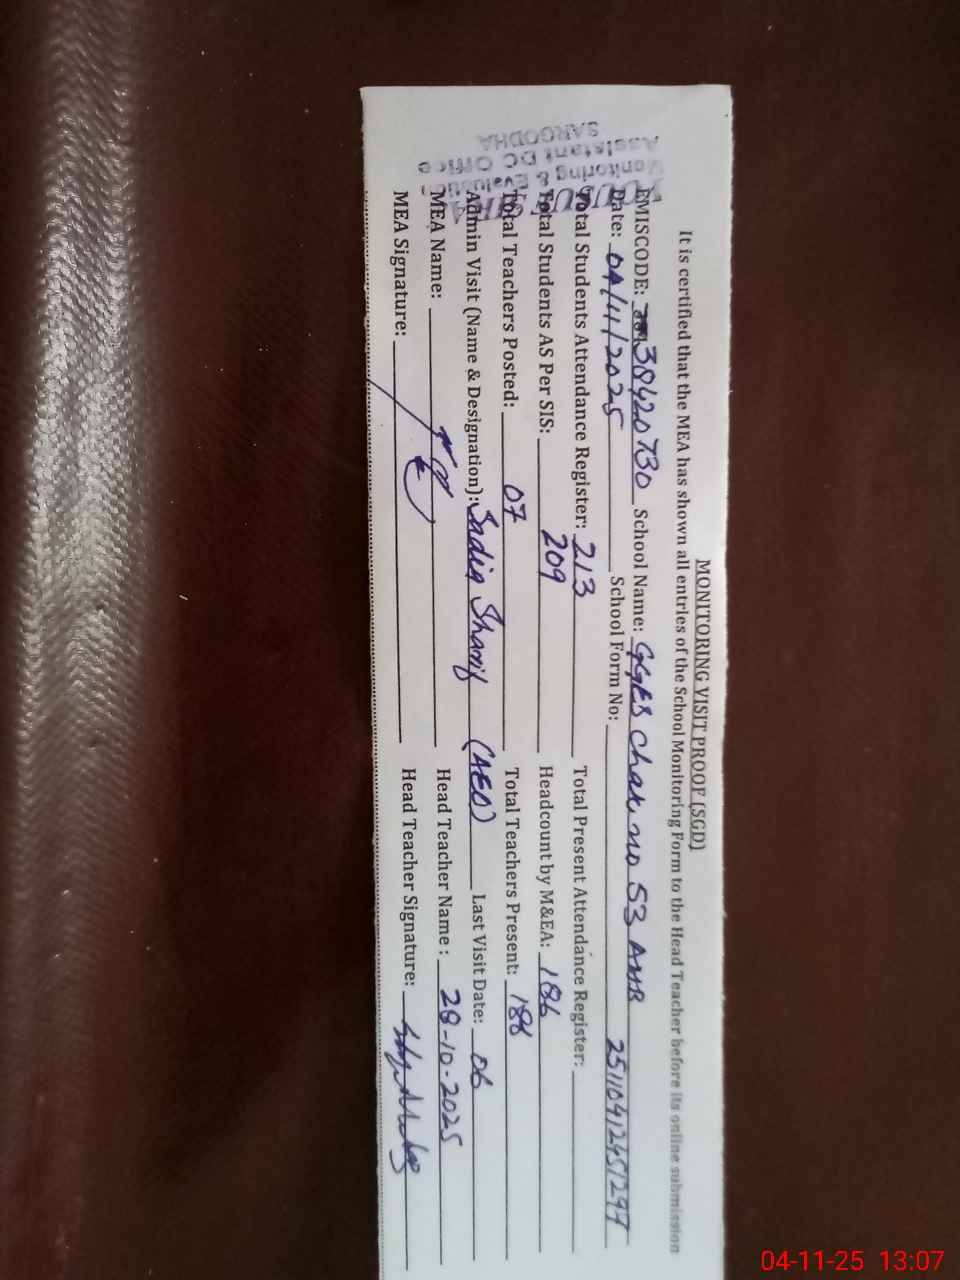 MONITORING VISIT PROOF (SGD)
It is certified that the MEA has shown all entries of the School Monitoring Form to the Head Teacher before its online submission
EMISCODE: 38420730 School Name: GGES Chak no 53 AMB
Date: 04/11/2025 School Form No: 25110412451297
Total Students Attendance Register: 213 Total Present Attendance Register:
Total Students AS Per SIS: 209 Headcount by M&EA: 186
Total Teachers Posted: 07 Total Teachers Present: 186
Admin Visit (Name & Designation): Sadia Sharif (AEO) Last Visit Date: 06
MEA Name: Head Teacher Name : 28-10-2025
MEA Signature: Head Teacher Signature:
Monitoring & Evaluation
Assistant DC Office
SARGODHA
04-11-25 13:07